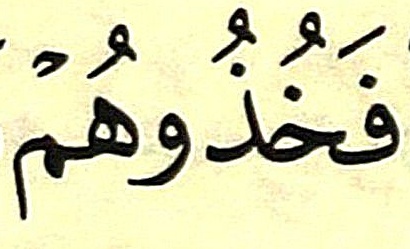 فَخُذُوهُمْ